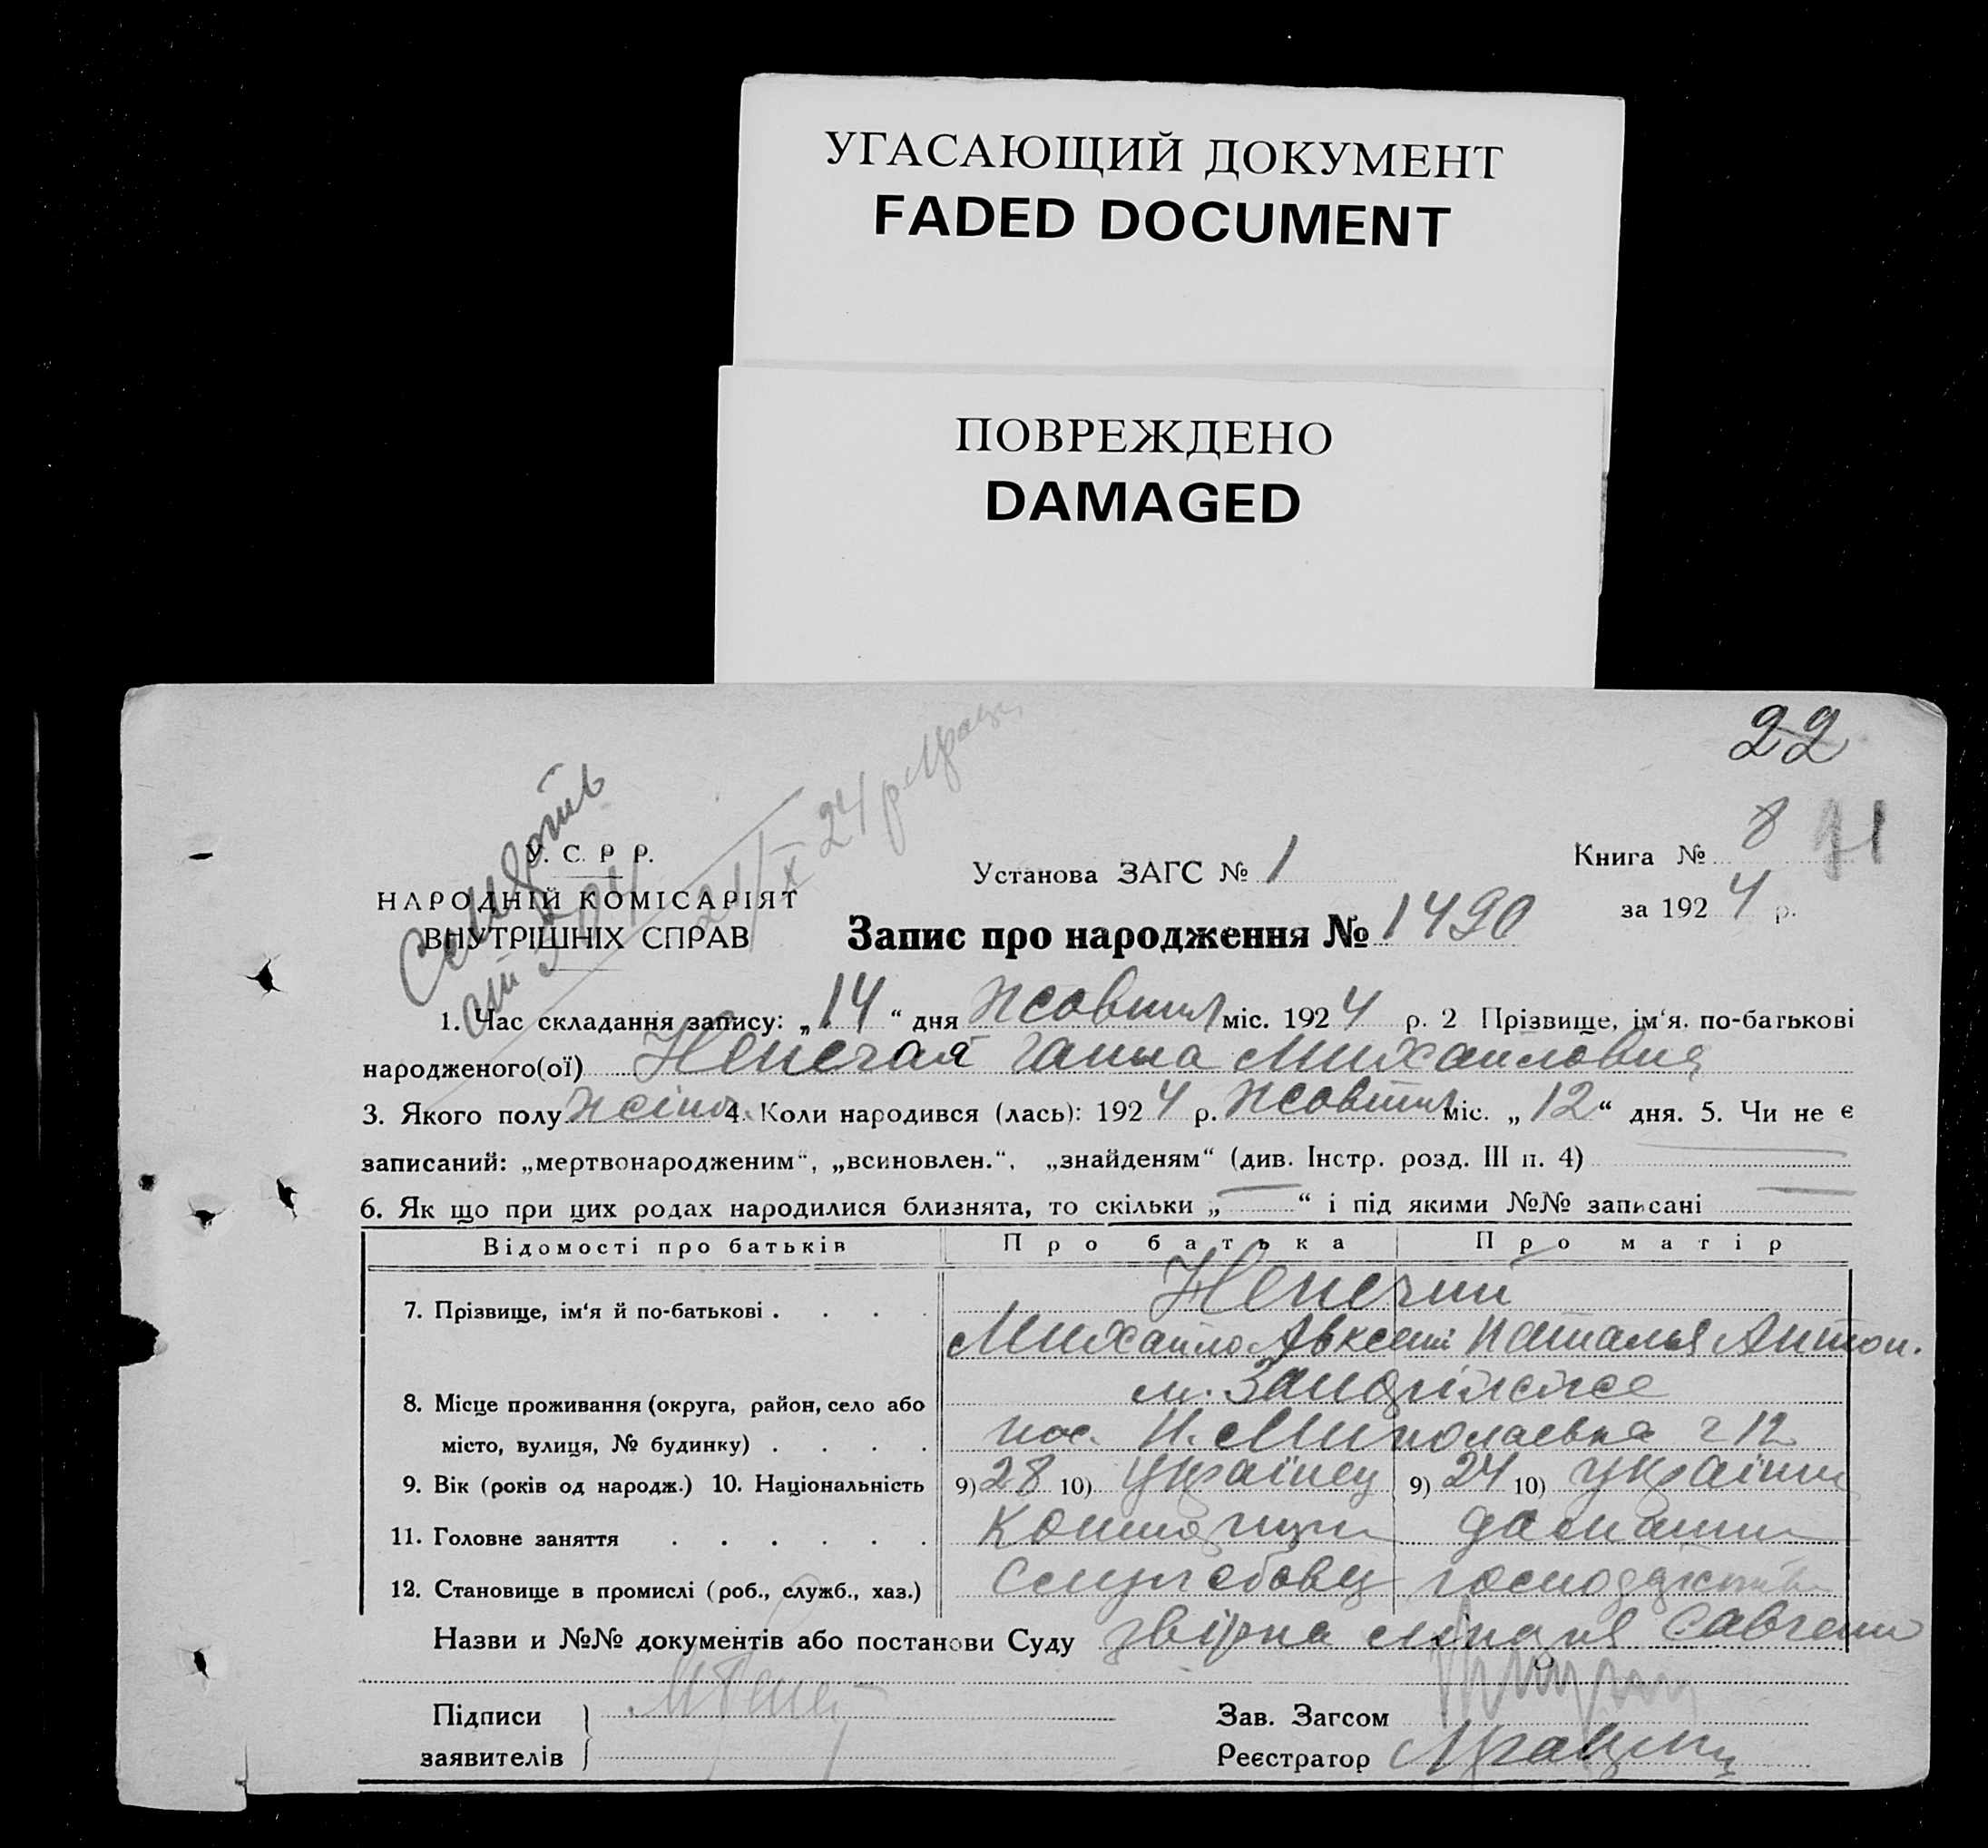 УГАСАЮЩИЙ ДОКУМЕНТ
FADED DOCUMENT
ПОВРЕЖДЕНО
DAMAGED
22
У. С. Р Р.
НАРОДНІЙ КОМІСАРІЯТ
ВНУТРІШНІХ СПРАВ
Установа ЗАГС № 1
Книга № 8
за 1924 р.
Запис про народження № 1490
1. Час складання запису: „14“ дня Жовтня міс. 1924 р. 2 Прізвище, ім‘я. по-батькові
народженого(ої) Ганна Михайловна
3. Якого полу жіноч. 4. Коли народився (лась): 1924 р. Жовтня міс. „12“ дня. 5. Чи не є
записаний: „мертвонародженим“, „всиновлен.“, „знайденям“ (див. Інстр. розд. III п. 4)
6. Як що при цих родах народилися близнята, то скільки „ “ і під якими №№ записані
Відомості про батьків Про батька Про матір
7. Прізвище, ім‘я й по-батькові . . . .
Михайло Авксент Наталья Антон.
м. Запоріжже
8. Місце проживання (округа, район, село або
місто, вулиця, № будинку) . . . . пос. Н. Миколаевка 12
9. Вік (років од народж.) 10. Національність 9) 28 10) Українец 9) 24 10) Українка
11. Головне заняття . . . . . . домашнє
12. Становище в промислі (роб., служб., хаз.) Службовец господарство
Назви и №№ документів або постанови Суду
Підписи
заявителів
Зав. Загсом
Реєстратор